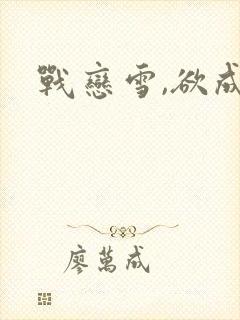 戰戀雪,欲成
廖萬成